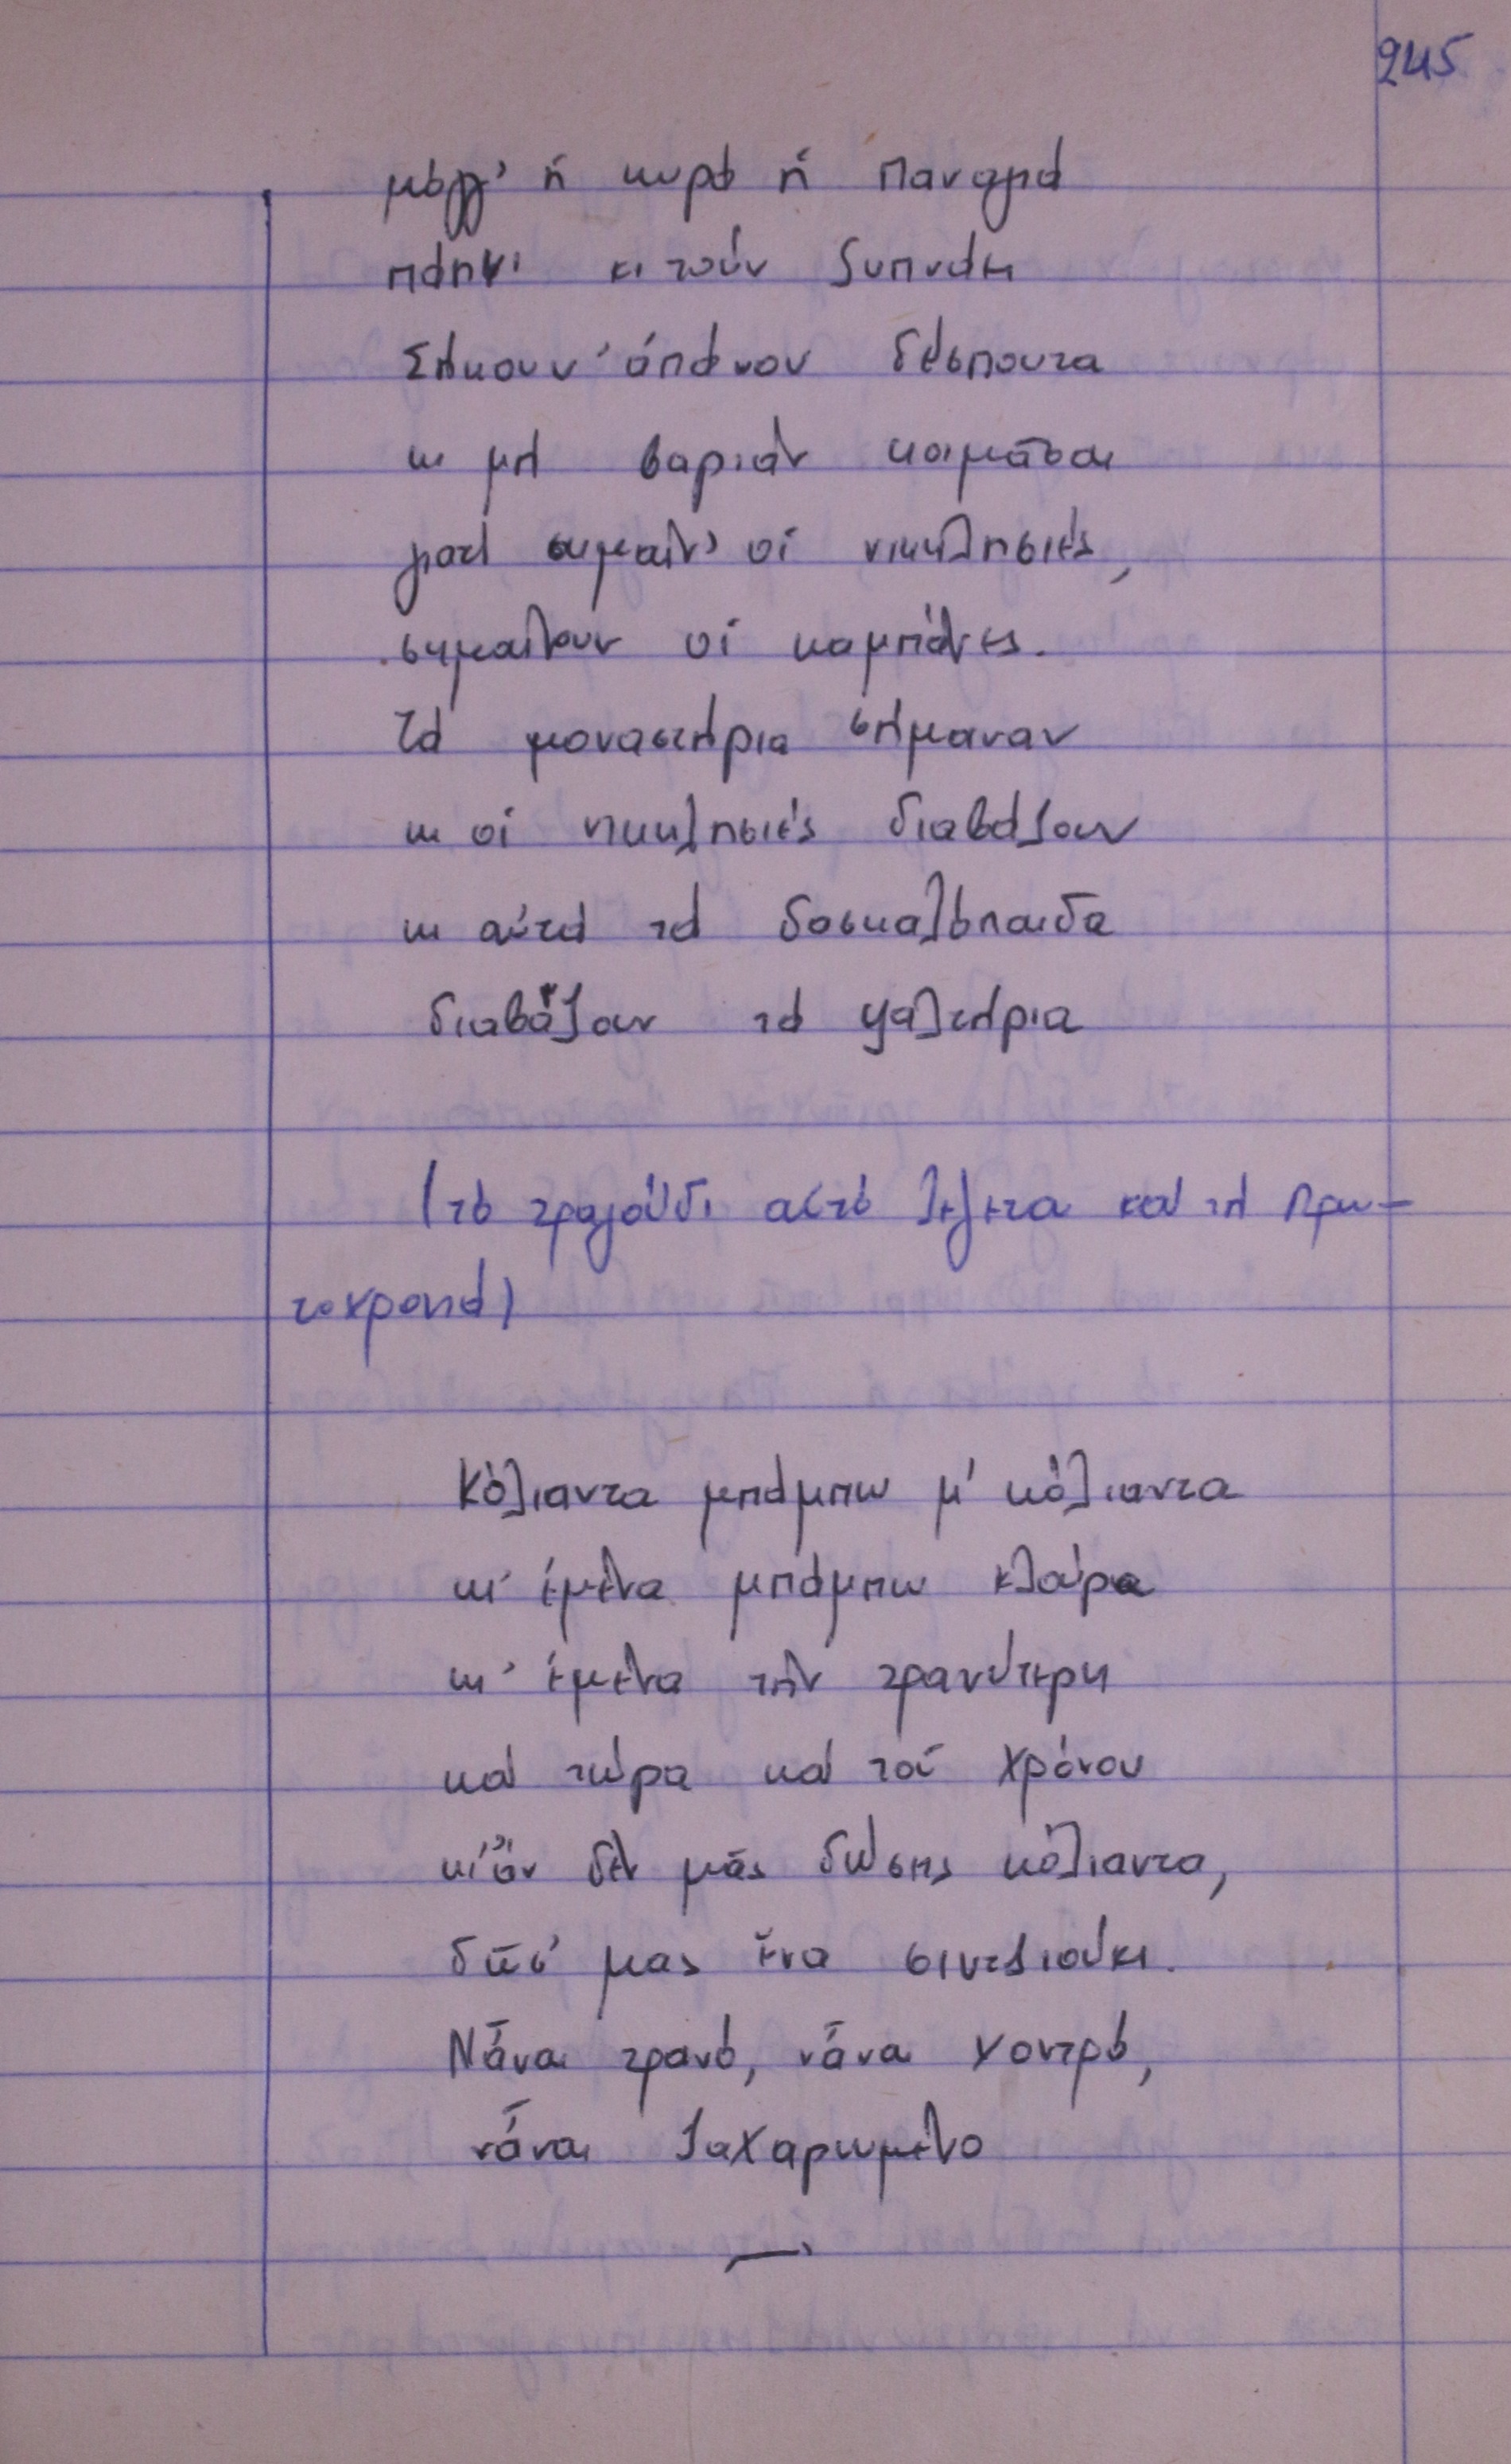 245
μόγγ' ἡ κυρά ἡ Παναγιά
πάηνι κι τούν ξυπνάει
Σήκουν' ἀπάνου δέσπουτα
κι μή βαριάν κοιμᾶσαι
γιατί σημαίν' οἱ νικκλησιές,
σημαίνουν οἱ καμπάνες.
Τά μοναστήρια σήμαναν
κι οἱ νικκλησιές διαβάζουν
κι αὐτά τά δασκαλόπαιδα
διαβάζουν τά ψαλτήρια
(τό τραγούδι αὐτό λέγεται καί τή Πρω-
τοχρονιά)
Κόλιαντα μπάμπω μ' κόλιαντα
κι' ἐμένα μπάμπω κλούρα
κι' ἐμένα τήν τρανύτερη
καί τώρα καί τοῦ χρόνου
κι' ἄν δέν μᾶς δώσεις κόλιαντα,
δῶσ' μας ἕνα σιντζιούκι.
Νἆναι τρανό, νἆναι χοντρό,
νἆναι ζαχαρωμένο